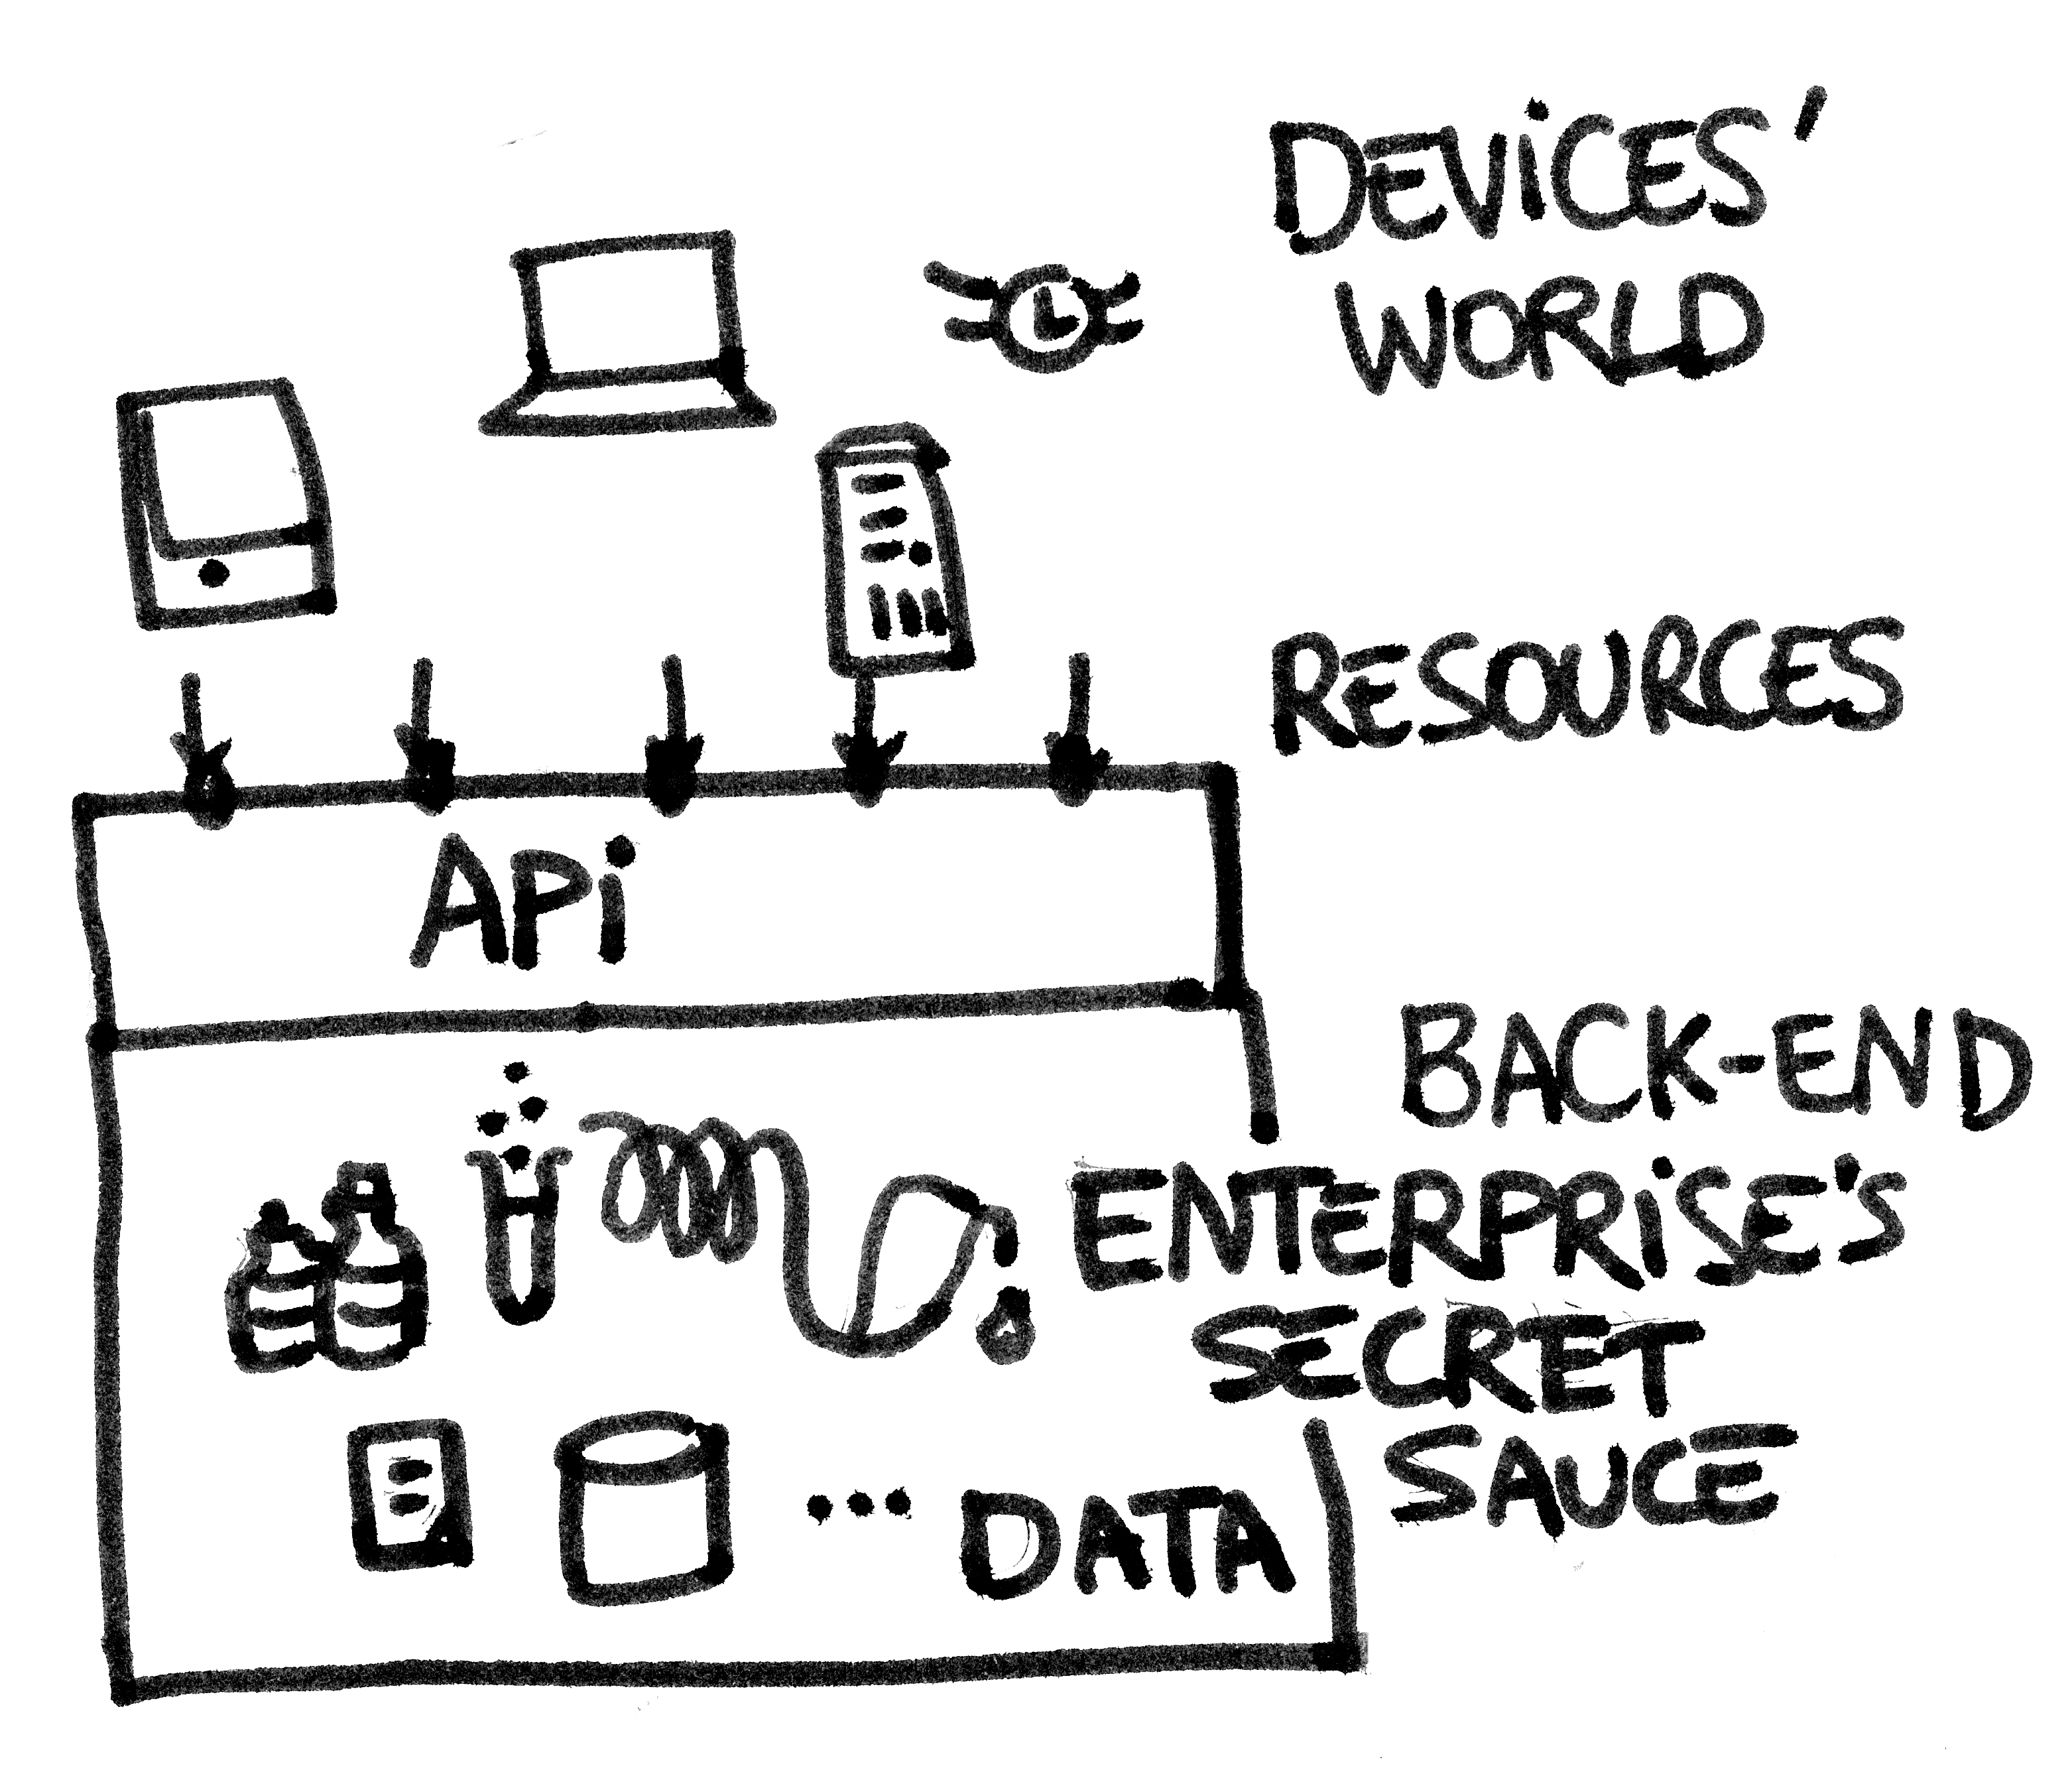 DEViCES'
WORLD
RESOURCES
APi
BACK-END
ENTERPRiSE'S
SECRET
SAUCE
... DATA